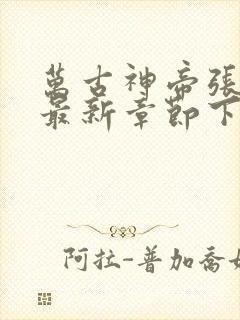 萬古神帝張
最新章節下
阿拉-普加喬